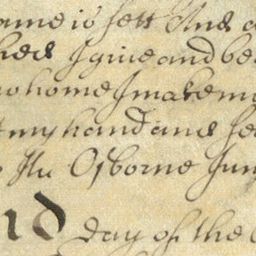 ame is sett And
I give and be
home I make my
my hand and se
Osborne Jun
day of the